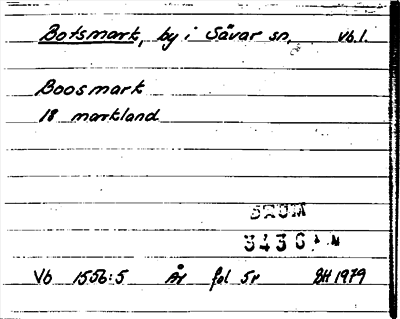 Botsmark, by i Sävar sn. Vb l.
Boosmark
18 markland
Vb 1556:5 År fol 5r GH 1979